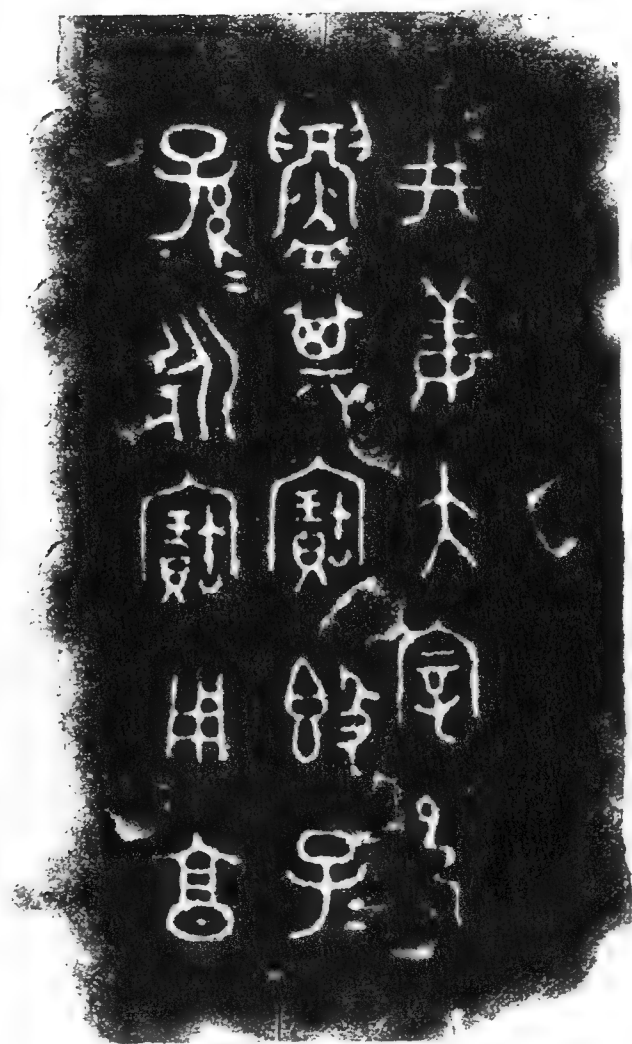 井姜大宰巳
鑄其寶𣪘子=
孫=永寶用享